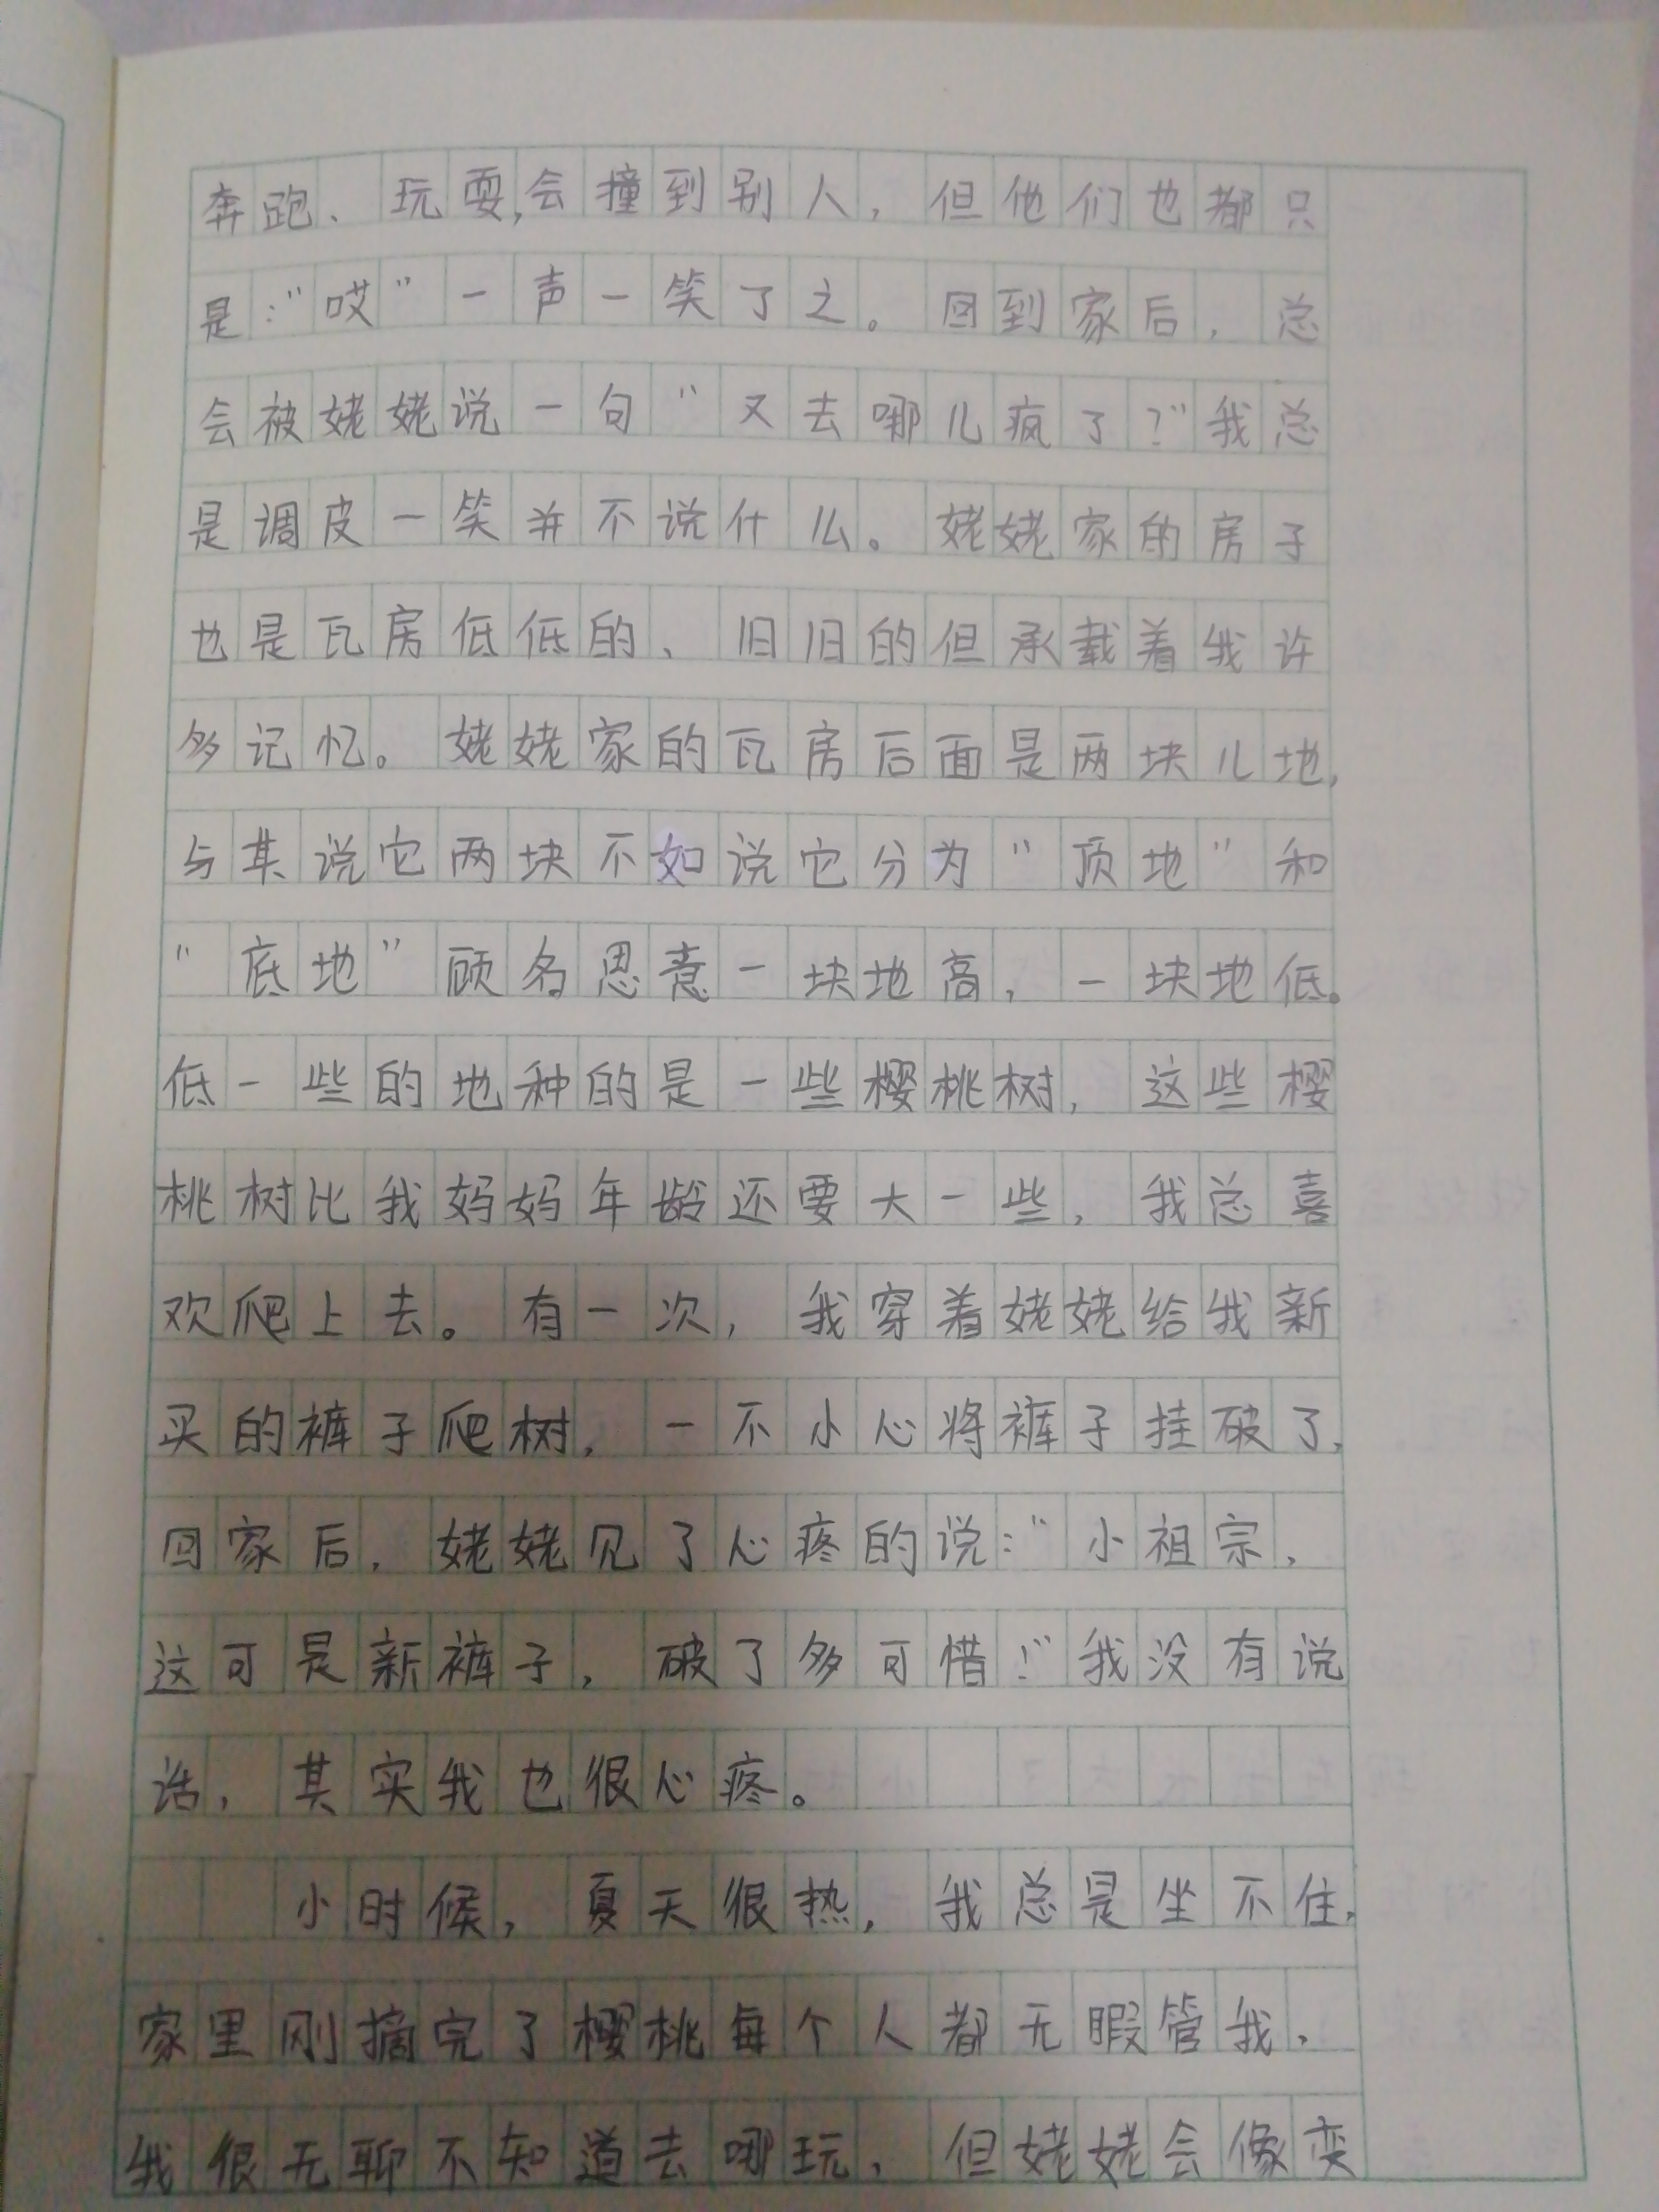 奔跑、玩耍,会撞到别人，但他们也都只
是:“哎”一声一笑了之。回到家后，总
会被姥姥说一句“又去哪儿疯了?”我总
是调皮一笑并不说什么。姥姥家的房子
也是瓦房低低的、旧旧的但承载着我许
多记忆。姥姥家的瓦房后面是两块儿地,
与其说它两块不如说它分为“顶地”和
“底地”顾名思意一块地高，一块地低。
低一些的地种的是一些樱桃树，这些樱
桃树比我妈妈年龄还要大一些，我总喜
欢爬上去。有一次，我穿着姥姥给我新
买的裤子爬树，一不小心将裤子挂破了,
回家后，姥姥见了心疼的说:“小祖宗，
这可是新裤子，破了多可惜!”我没有说
话，其实我也很心疼。
小时候，夏天很热，我总是坐不住,
家里刚摘完了樱桃每个人都无暇管我，
我很无聊不知道去哪玩，但姥姥会像变